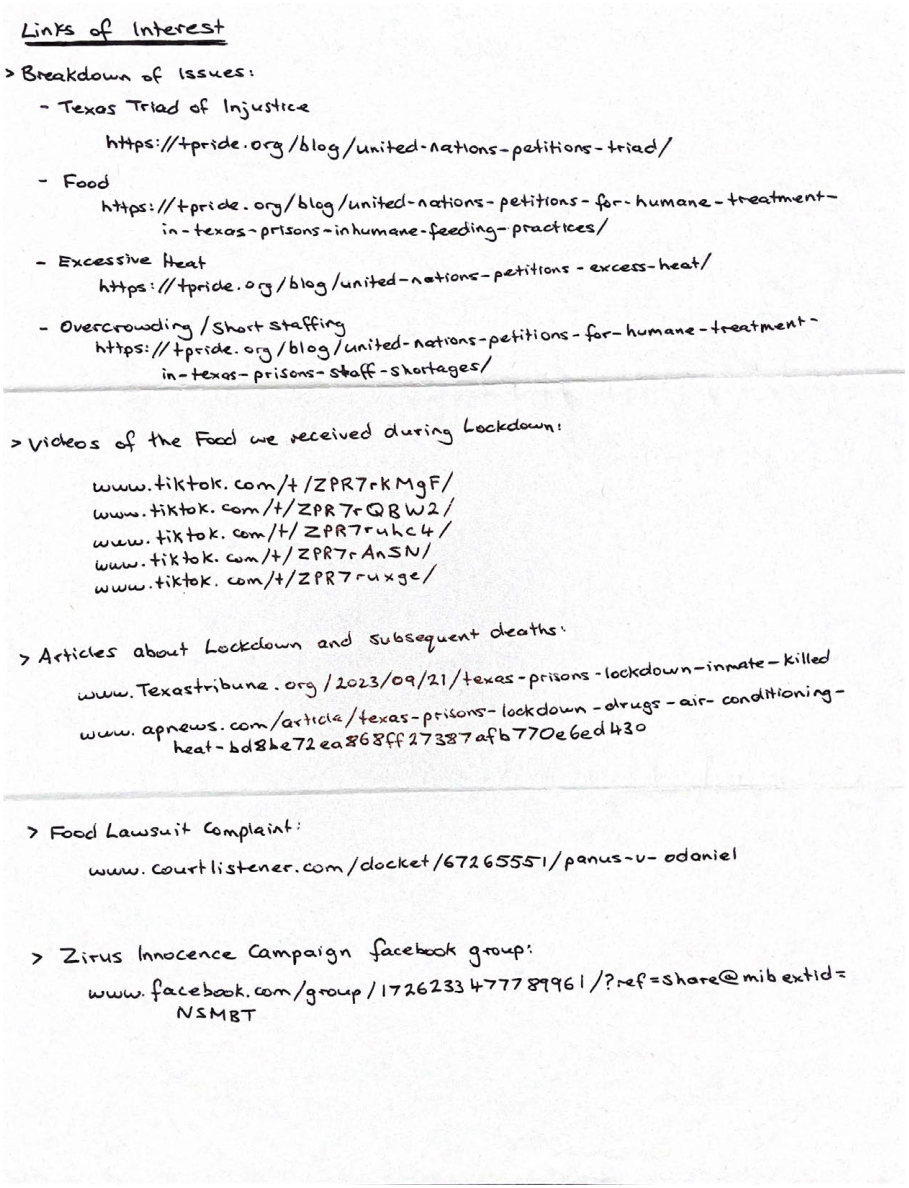 Links of Interest
> Breakdown of Issues:
- Texas Triad of Injustice
https://tpride.org/blog/united-nations-petitions-triad/
- Food
https://tpride.org/blog/united-nations-petitions-for-humane-treatment-
in-texas-prisons-inhumane-feeding-practices/
- Excessive Heat
https://tpride.org/blog/united-nations-petitions-excess-heat/
- Overcrowding/Short staffing
https://tpride.org/blog/united-nations-petitions-for-humane-treatment-
in-texas-prisons-staff-shortages/
> Videos of the Food we received during Lockdown:
www.tiktok.com/t/ZPR7rKMgF/
www.tiktok.com/t/ZPR7rQBW2/
www.tiktok.com/t/ZPR7ruhc4/
www.tiktok.com/t/ZPR7rAnSN/
www.tiktok.com/t/ZPR7ruxge/
> Articles about Lockdown and subsequent deaths:
www.Texastribune.org/2023/09/21/texas-prisons-lockdown-inmate-killed
www.apnews.com/article/texas-prisons-lockdown-drugs-air-conditioning-
heat-bd8be72ea868ff27387afb770e6ed430
> Food Lawsuit Complaint:
www.courtlistener.com/docket/67265551/panus-v-odaniel
> Zirus Innocence Campaign facebook group:
www.facebook.com/group/1726233477789961/?ref=share@mibextid=
NSMBT